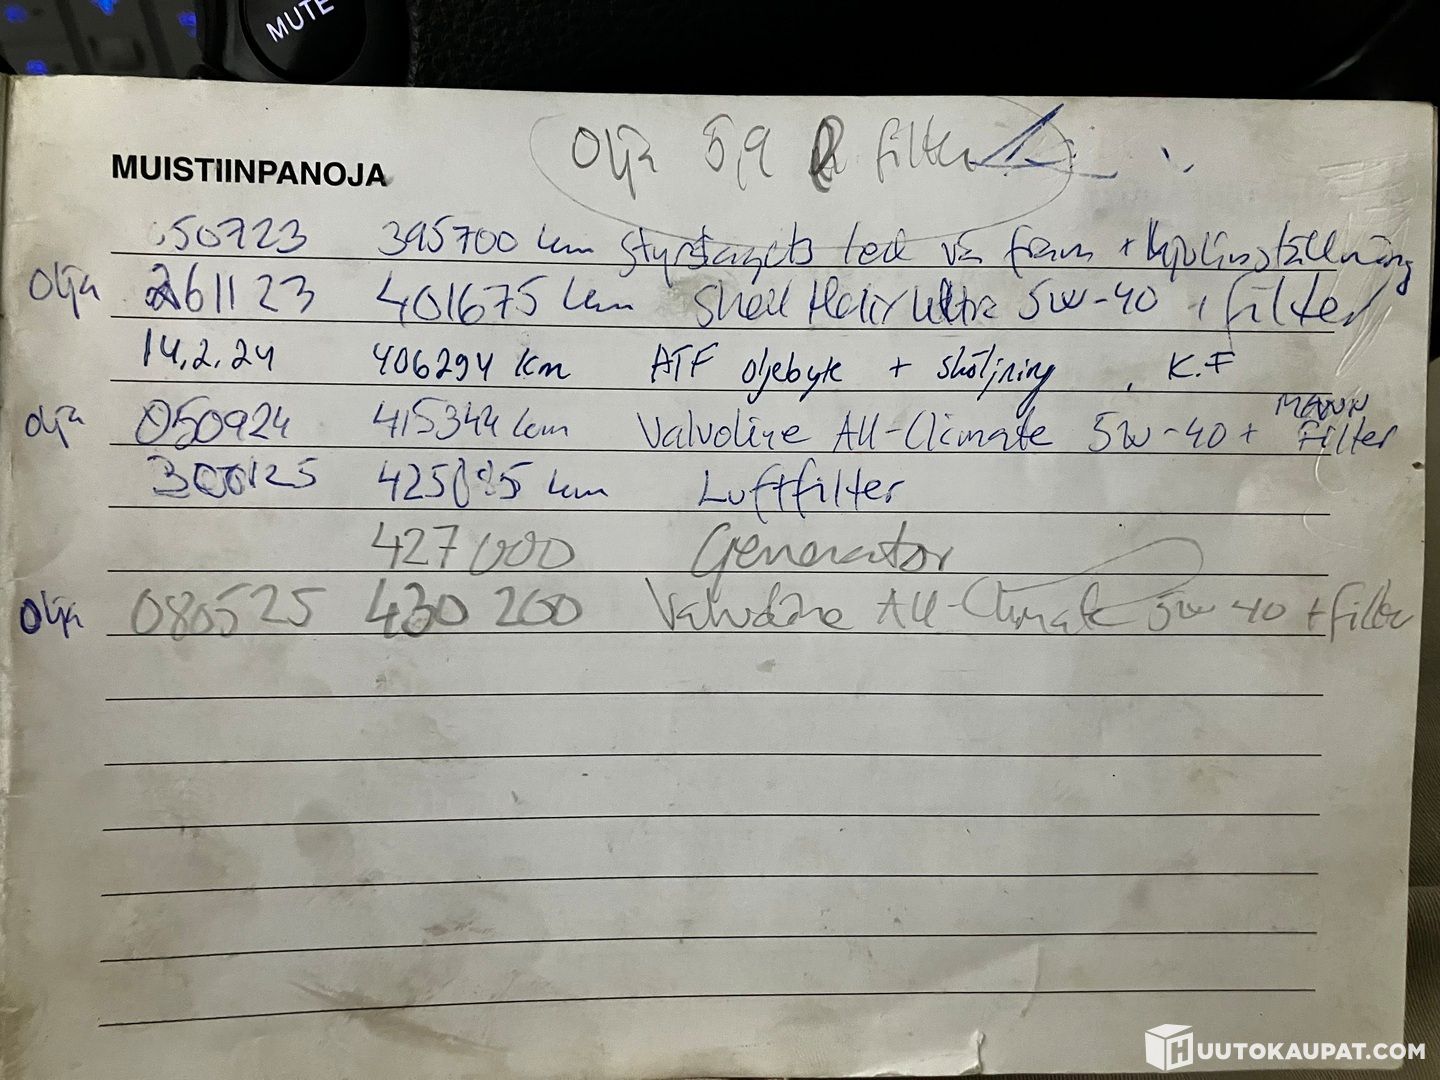 MUTE
Olja 5,9 l filter
MUISTIINPANOJA
050723 395700 km styrstagets led vä fram + hjulinställning
Olja 261123 401675 km Shell Helix Ultra 5W-40 + filter
14.2.24 406294 km ATF oljebyte + sköljning, K.F
olja 050924 415344 km Valvoline All-Climate 5W-40 + MANN filter
km Luftfilter
427000 Generator
Olja 080525 430 200 Valvoline All-Climate 5W 40 + filter
HUUTOKAUPAT.COM